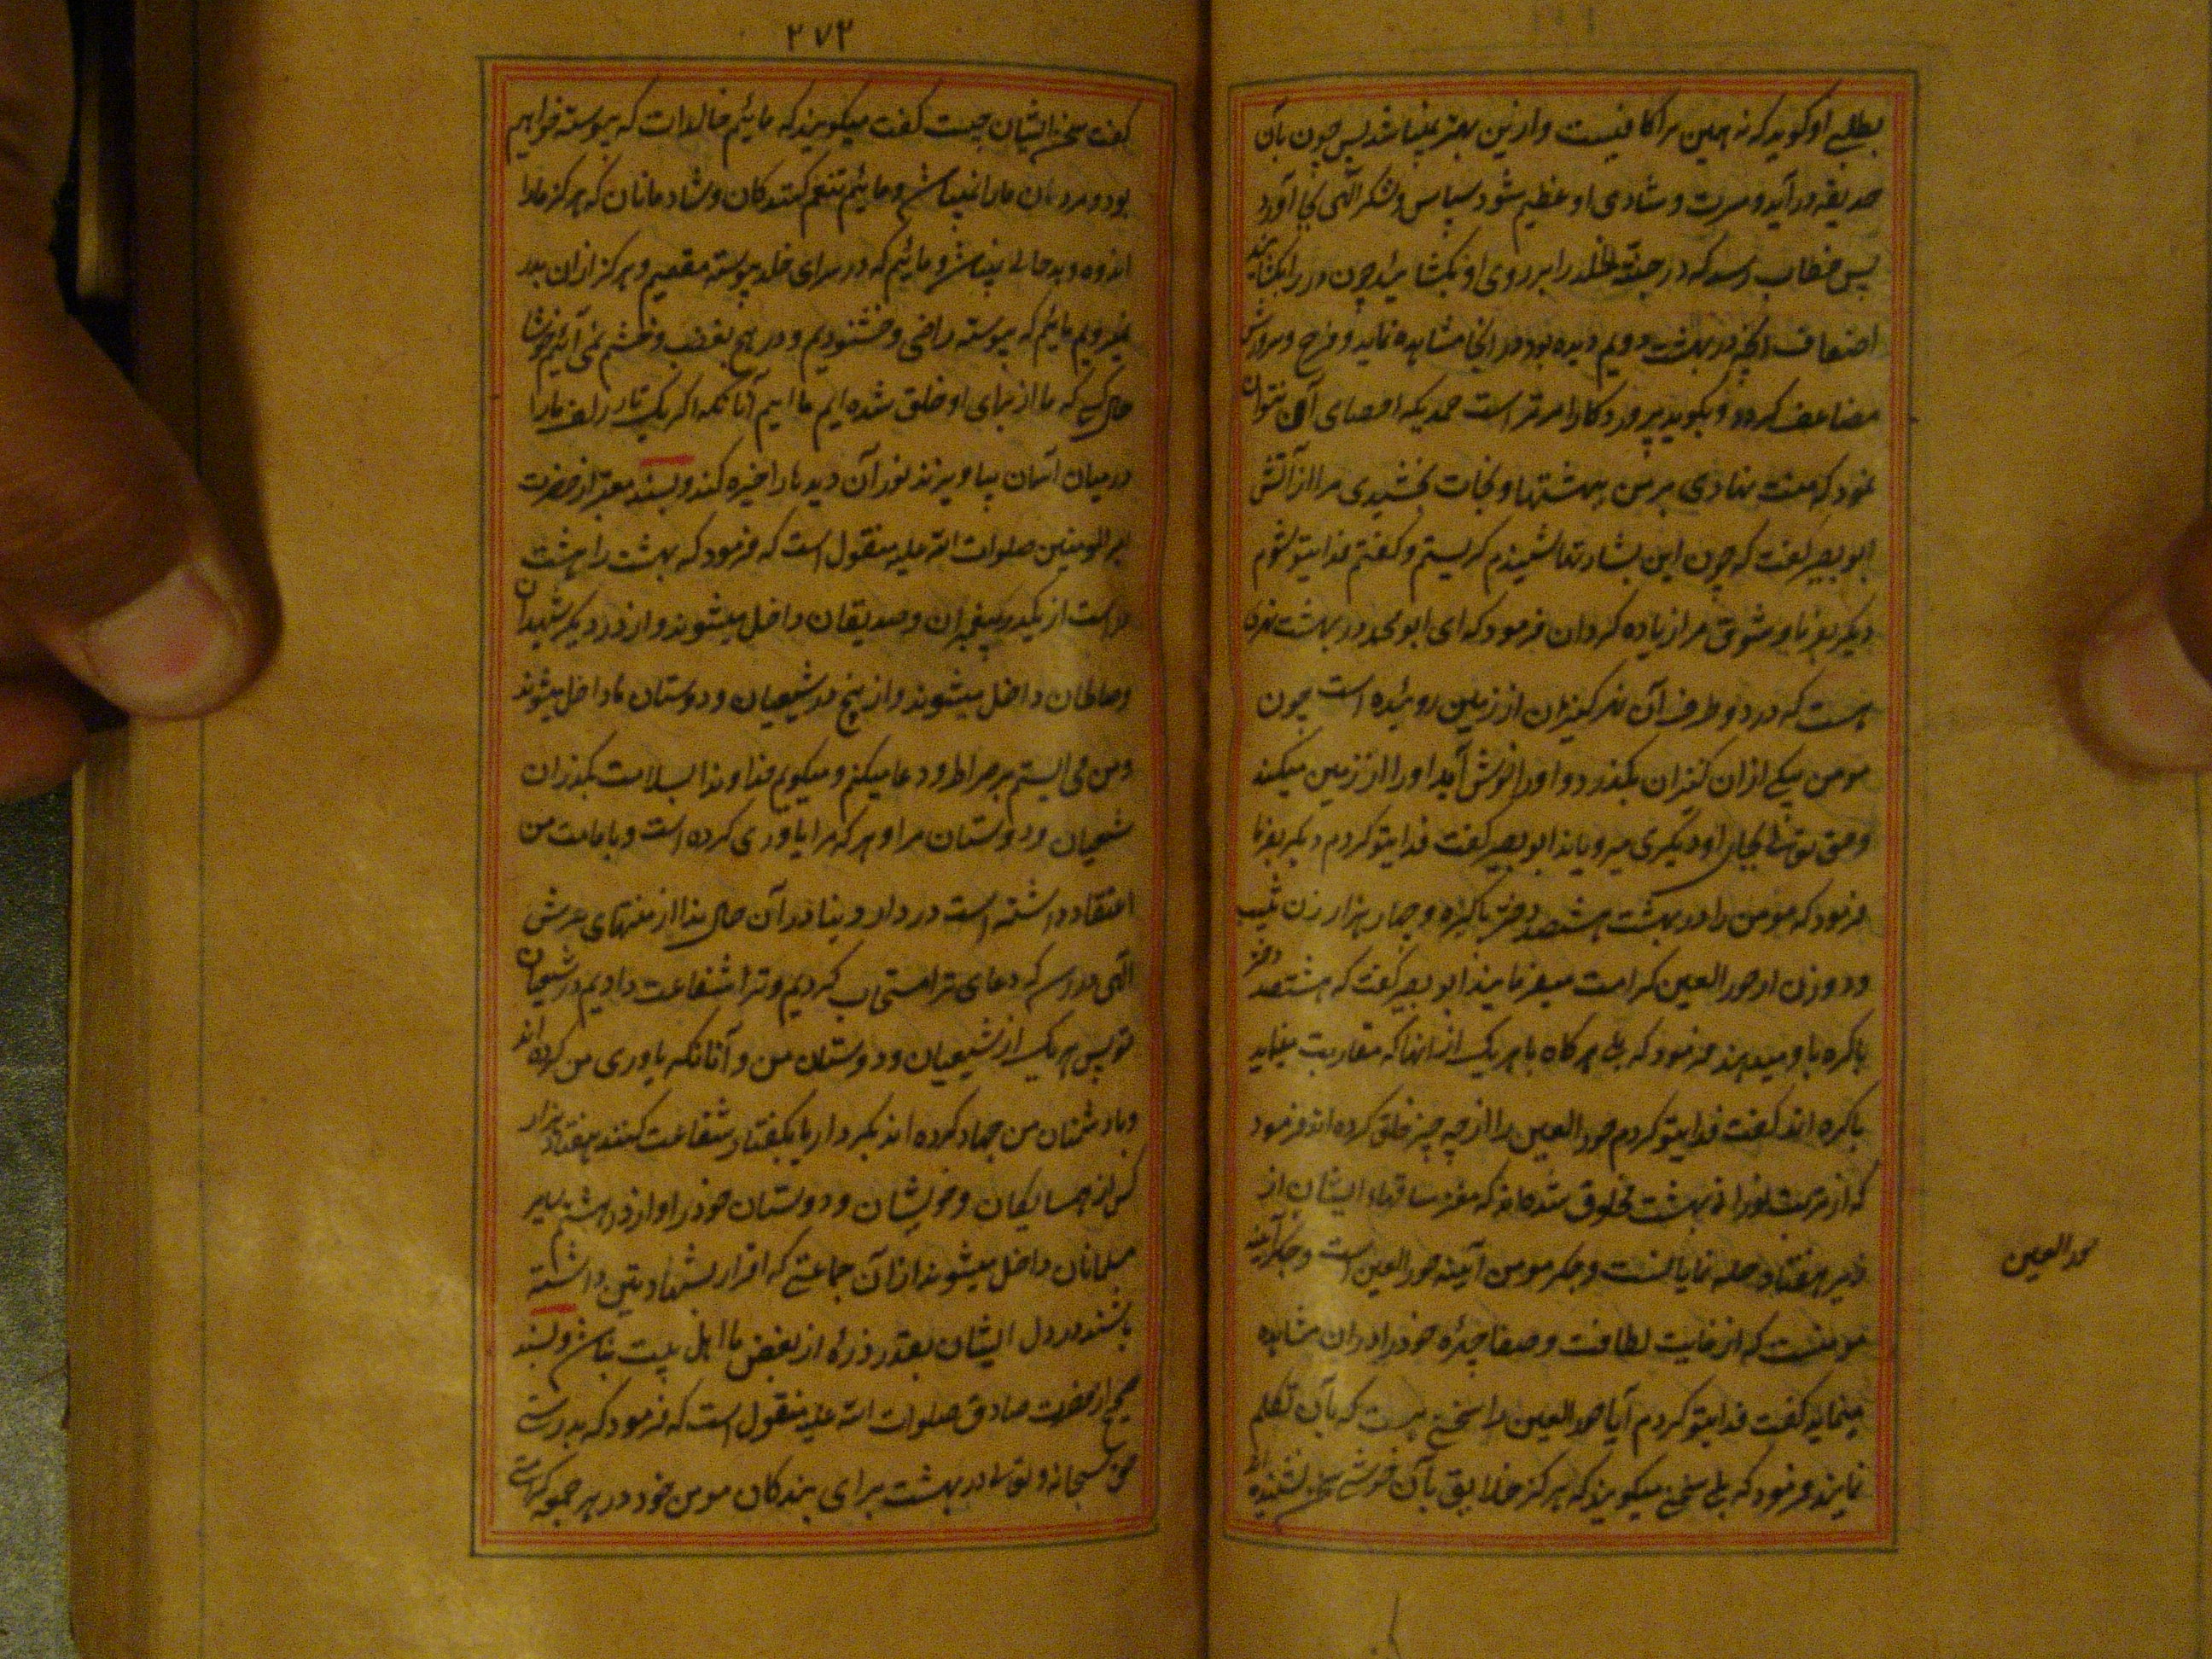 بطلبی او گوید که نه همین مرا کافیست و ازین بهتر نمیباشد پس چون بآن
حدیقه درآید و مسرت و شادی او عظیم شود سپاس و شکر الهی بجا آورد
پس خطاب رسد که در جنة الخلد را بر روی او بکشائید چون در را بکشایند
اضعاف آنچه در بهشت دویم دیده بود در آنجا مشاهده نماید و فرح و سرورش
مضاعف گردد و بگوید پروردگارا مر تراست حمدیکه احصای آن نتوان
نمود که منت نهادی بر من ببهشتها و نجات بخشیدی مرا از آتش
ابو بصیر گفت که چون این بشارتها شنیدم گریستم و گفتم فدایتو شوم
دیگر بفرما و شوق مرا زیاده گردان فرمود که ای ابو محمد در بهشت نهری
هست که در دو طرف آن نهر کنیزان از زمین روئیده است چون
مومن بیکی ازان کنیزان بگذرد و او را خوش آید او را از زمین میکند
و حق تعالی بجای او دیگری میرویاند ابو بصیر گفت فدایتو گردم دیگر بفرما
فرمود که مومن را در بهشت هشتصد دختر باکره و چهار هزار زن ثیب
و دو زن از حور العین کرامت میفرمایند ابو بصیر گفت که هشتصد دختر
باکره باو میدهند فرمود که بلی هرگاه با هر یک از انها که مقاربت مینماید
باکره اند گفت فدایتو گردم حور العین را از چه چیز خلق کرده اند فرمود
که از تربت نورانی بهشت مخلوق شده اند که مغز ساقهاء ایشان از
زیر هفتاد حله نمایانست و جگر مومن آیینه حور العین است و جگر آیینه
مومنست که از غایت لطافت و صفا چهره خود را دران مشاهده
مینماید گفت فدایتو گردم آیا حور العین را سخنی هست که بآن تکلم
نمایند فرمود که بلی سخنی میگویند که هرگز خلایق بآن خوشی سخن نشنیده اند
حور العین
۲۷۲
گفت سخن ایشان چیست گفت میگویند که مائیم خالدات که پیوسته خواهیم
بود و مردن مارا نمیباشد و مائیم تنعم کنندگان و شادمانان که هرگز مارا
اندوه و بدحالی نمیباشد و مائیم که در سرای خلد پیوسته مقیم و هرگز ازان بدر
نمیرویم مائیم که پیوسته راضی و خشنودیم و در هیچ بغضب و خشم نمی آئیم خوشا
حال کسی که ما از برای او خلق شده ایم مائیم آنانکه اگر یک تار زلف مارا
در میان آسمان بیاویزند نور آن دیدها را خیره کند و بسند معتبر از حضرت
امیر المومنین صلوات الله علیه منقول است که فرمود که بهشت را هشت
در است از یکدر پیغمبران و صدیقان داخل میشوند و از در دیگر شهیدان
و صالحان داخل میشوند و از پنج در شیعیان و دوستان ما داخل میشوند
و من می ایستم بر صراط و دعا میکنم و میگویم خداوندا بسلامت بگذران
شیعیان و دوستان مرا و هر که مرا یاوری کرده است و بامامت من
اعتقاد داشته است در دار دنیا در آن حال ندا از منتهای عرش
الهی در رسد که دعای ترا مستجاب کردیم و ترا شفاعت دادیم در شیعیان
تو پس هر یک از شیعیان و دوستان من و آنانکه یاوری من کرده اند
و با دشمنان من جهاد کرده اند بکردار یا بگفتار شفاعت کنند هفتاد هزار
کس از همسایگان و خویشان و دوستان خود را و از در هشتم سایر
مسلمانان داخل میشوند از آن جماعتی که اقرار بشهادتین داشته
باشند و در دل ایشان بقدر ذره از بغض ما اهل بیت نباشد و بسند
صحیح از حضرت صادق صلوات الله علیه منقول است که فرمود که بدرستی
حق سبحانه و تعالی در بهشت برای بندگان مومن خود در هر جمعه کرامتی